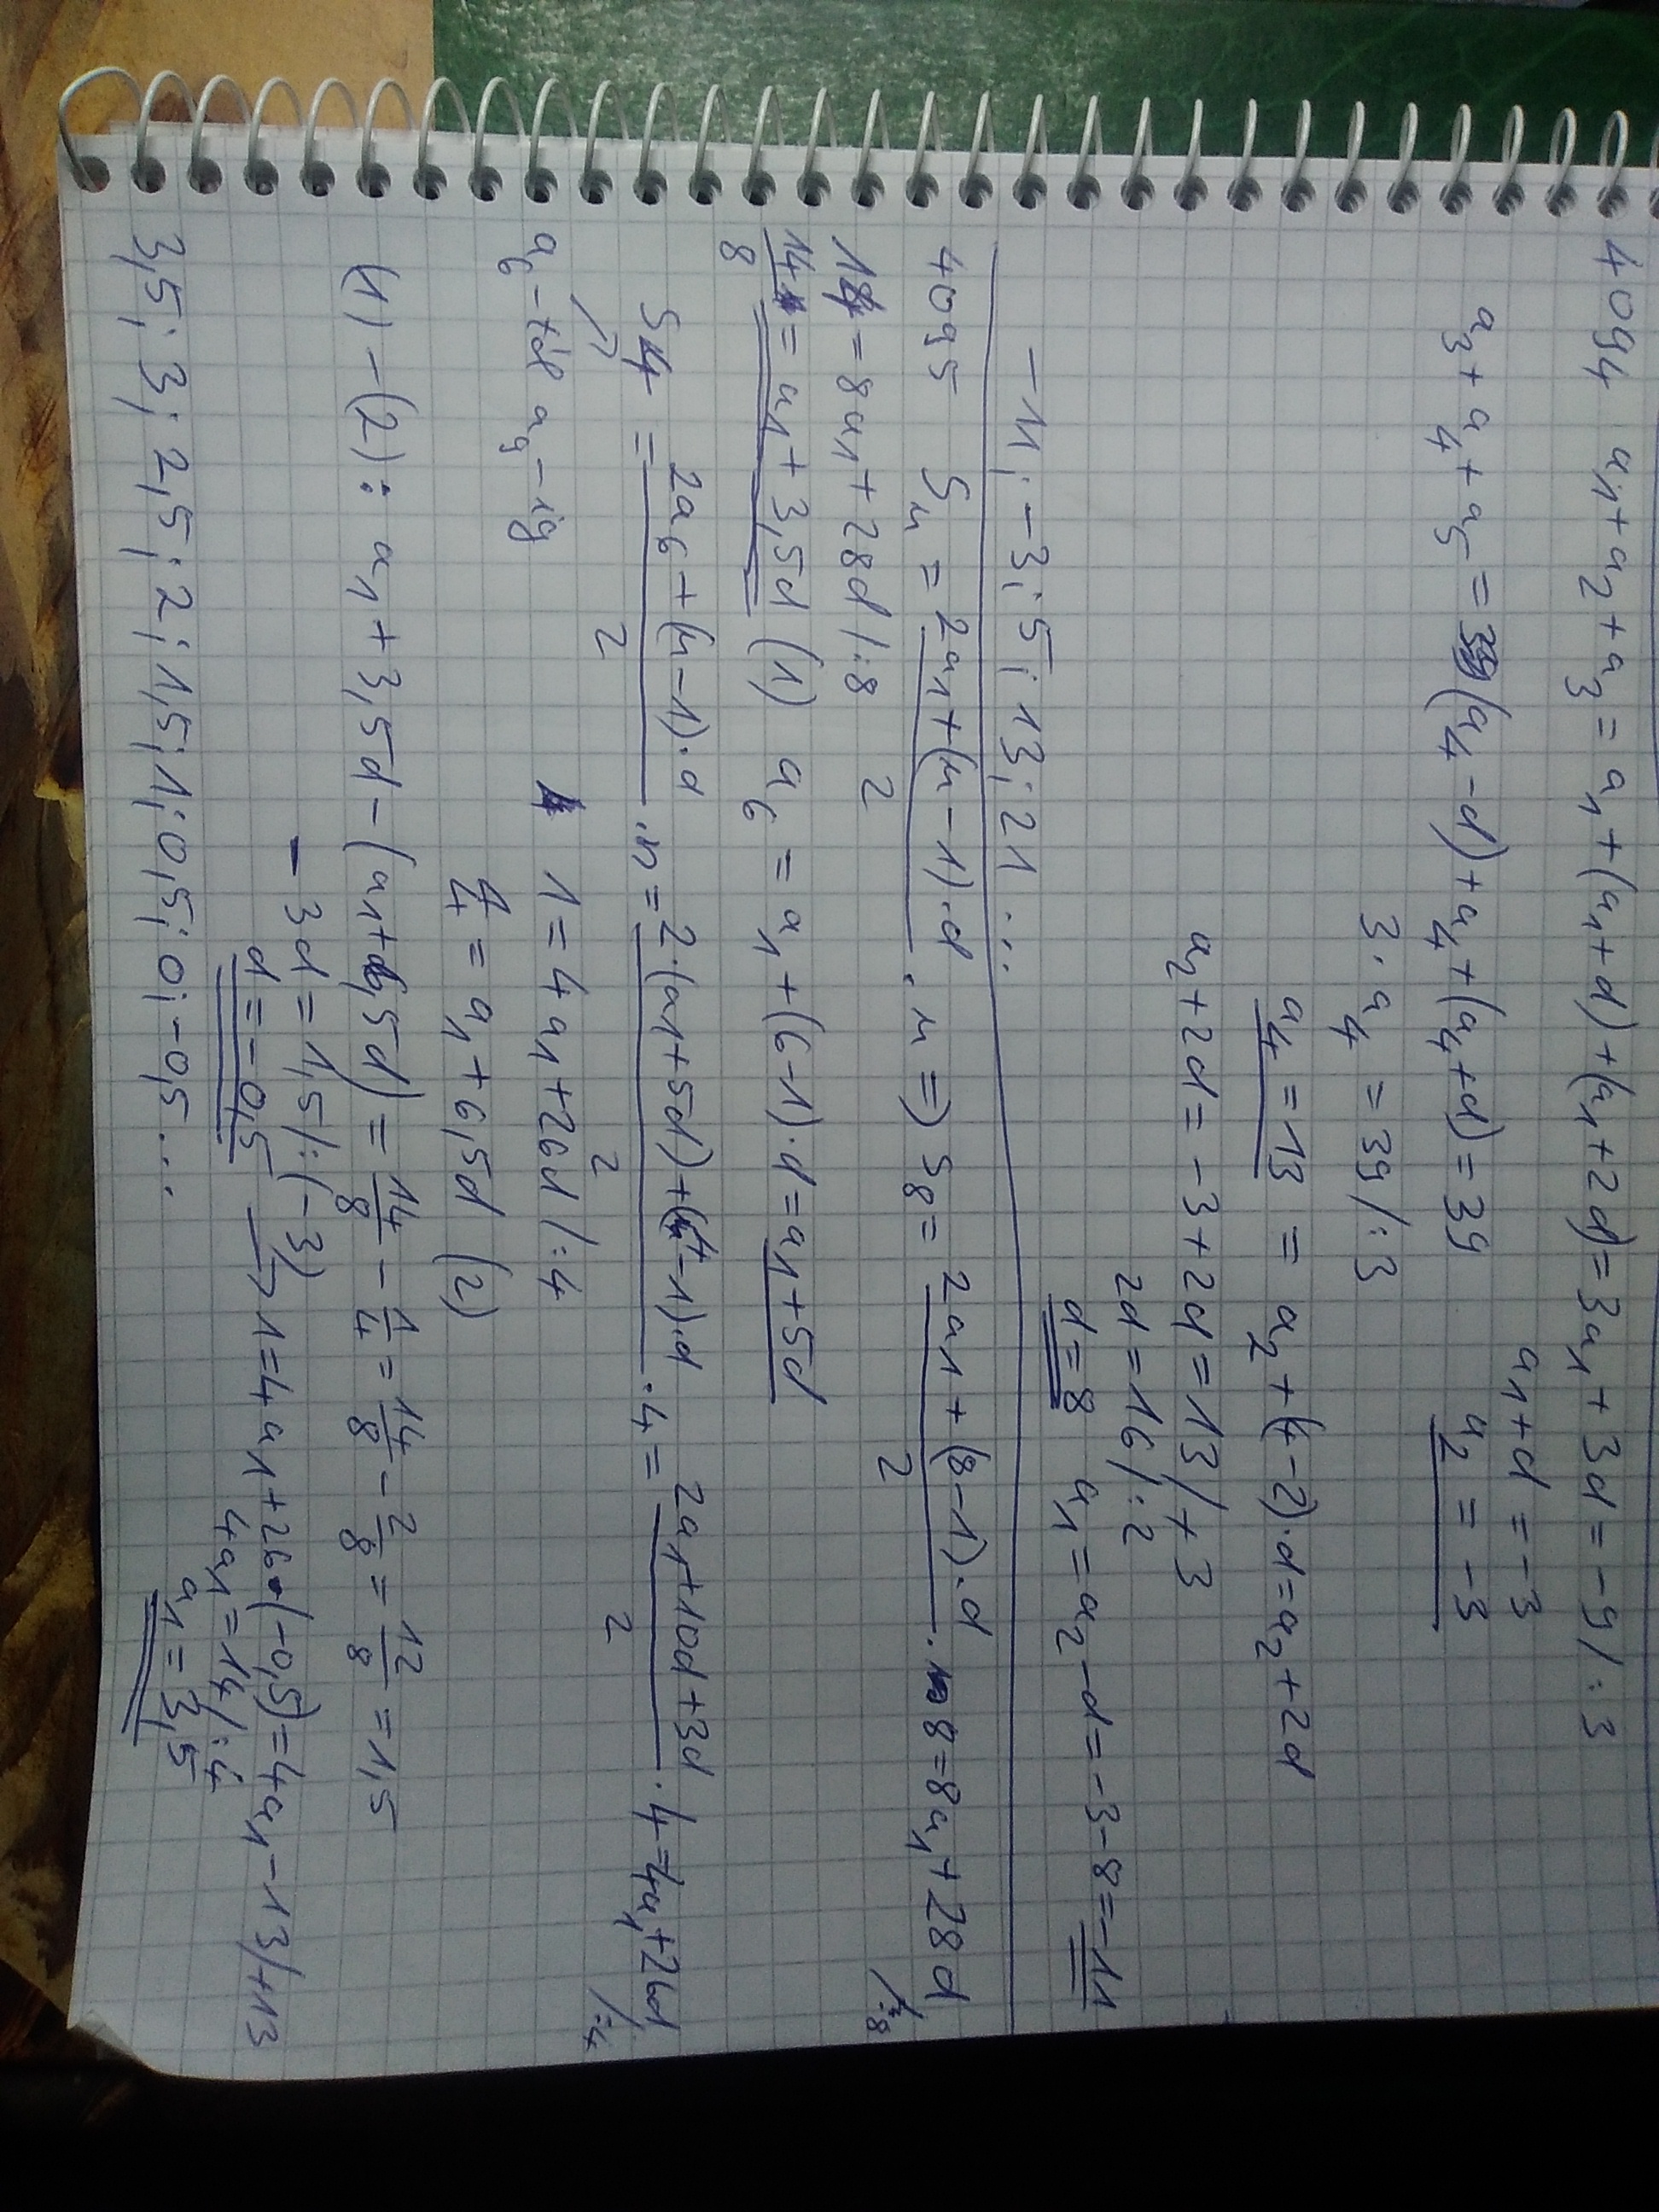 4094 a₁+a₂+a₃=a₁+(a₁+d)+(a₁+2d)=3a₁+3d=-9/:3
a₁+d=-3
a₃+a₄+a₅=(a₄-d)+a₄+(a₄+d)=39
a₂=-3
3·a₄=39/:3
a₄=13=a₂+(4-2)·d=a₂+2d
a₂+2d=-3+2d=13/+3
2d=16/:2
d=8 a₁=a₂-d=-3-8=-11
-11; -3; 5; 13; 21...
4095 Sₙ=(2a₁+(n-1)·d)/2·n⇒S₈=(2a₁+(8-1)·d)/2·8=8a₁+28d
/:8
14=8a₁+28d/:8
14/8=a₁+3,5d (1) a₆=a₁+(6-1)·d=a₁+5d
S₄=(2a₆+(n-1)·d)/2·n=(2·(a₁+5d)+(4-1)·d)/2·4=(2a₁+10d+3d)/2·4=4a₁+26d
/:4
a₆-tól a₉-ig 1=4a₁+26d/:4
1/4=a₁+6,5d (2)
(1)-(2): a₁+3,5d-(a₁+6,5d)=14/8-1/4=14/8-2/8=12/8=1,5
-3d=1,5/:(-3)
d=-0,5→1=4a₁+26·(-0,5)=4a₁-13/+13
4a₁=14/:4
a₁=3,5
3,5; 3; 2,5; 2; 1,5; 1; 0,5; 0; -0,5...